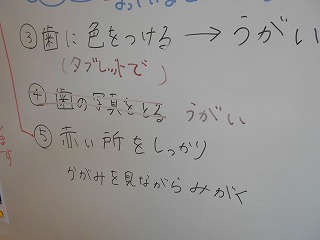 ③歯に色をつける → うがい
(タブレットで)
④歯の写真をとる うがい
⑤赤い所をしっかり
かがみを見ながらみがく